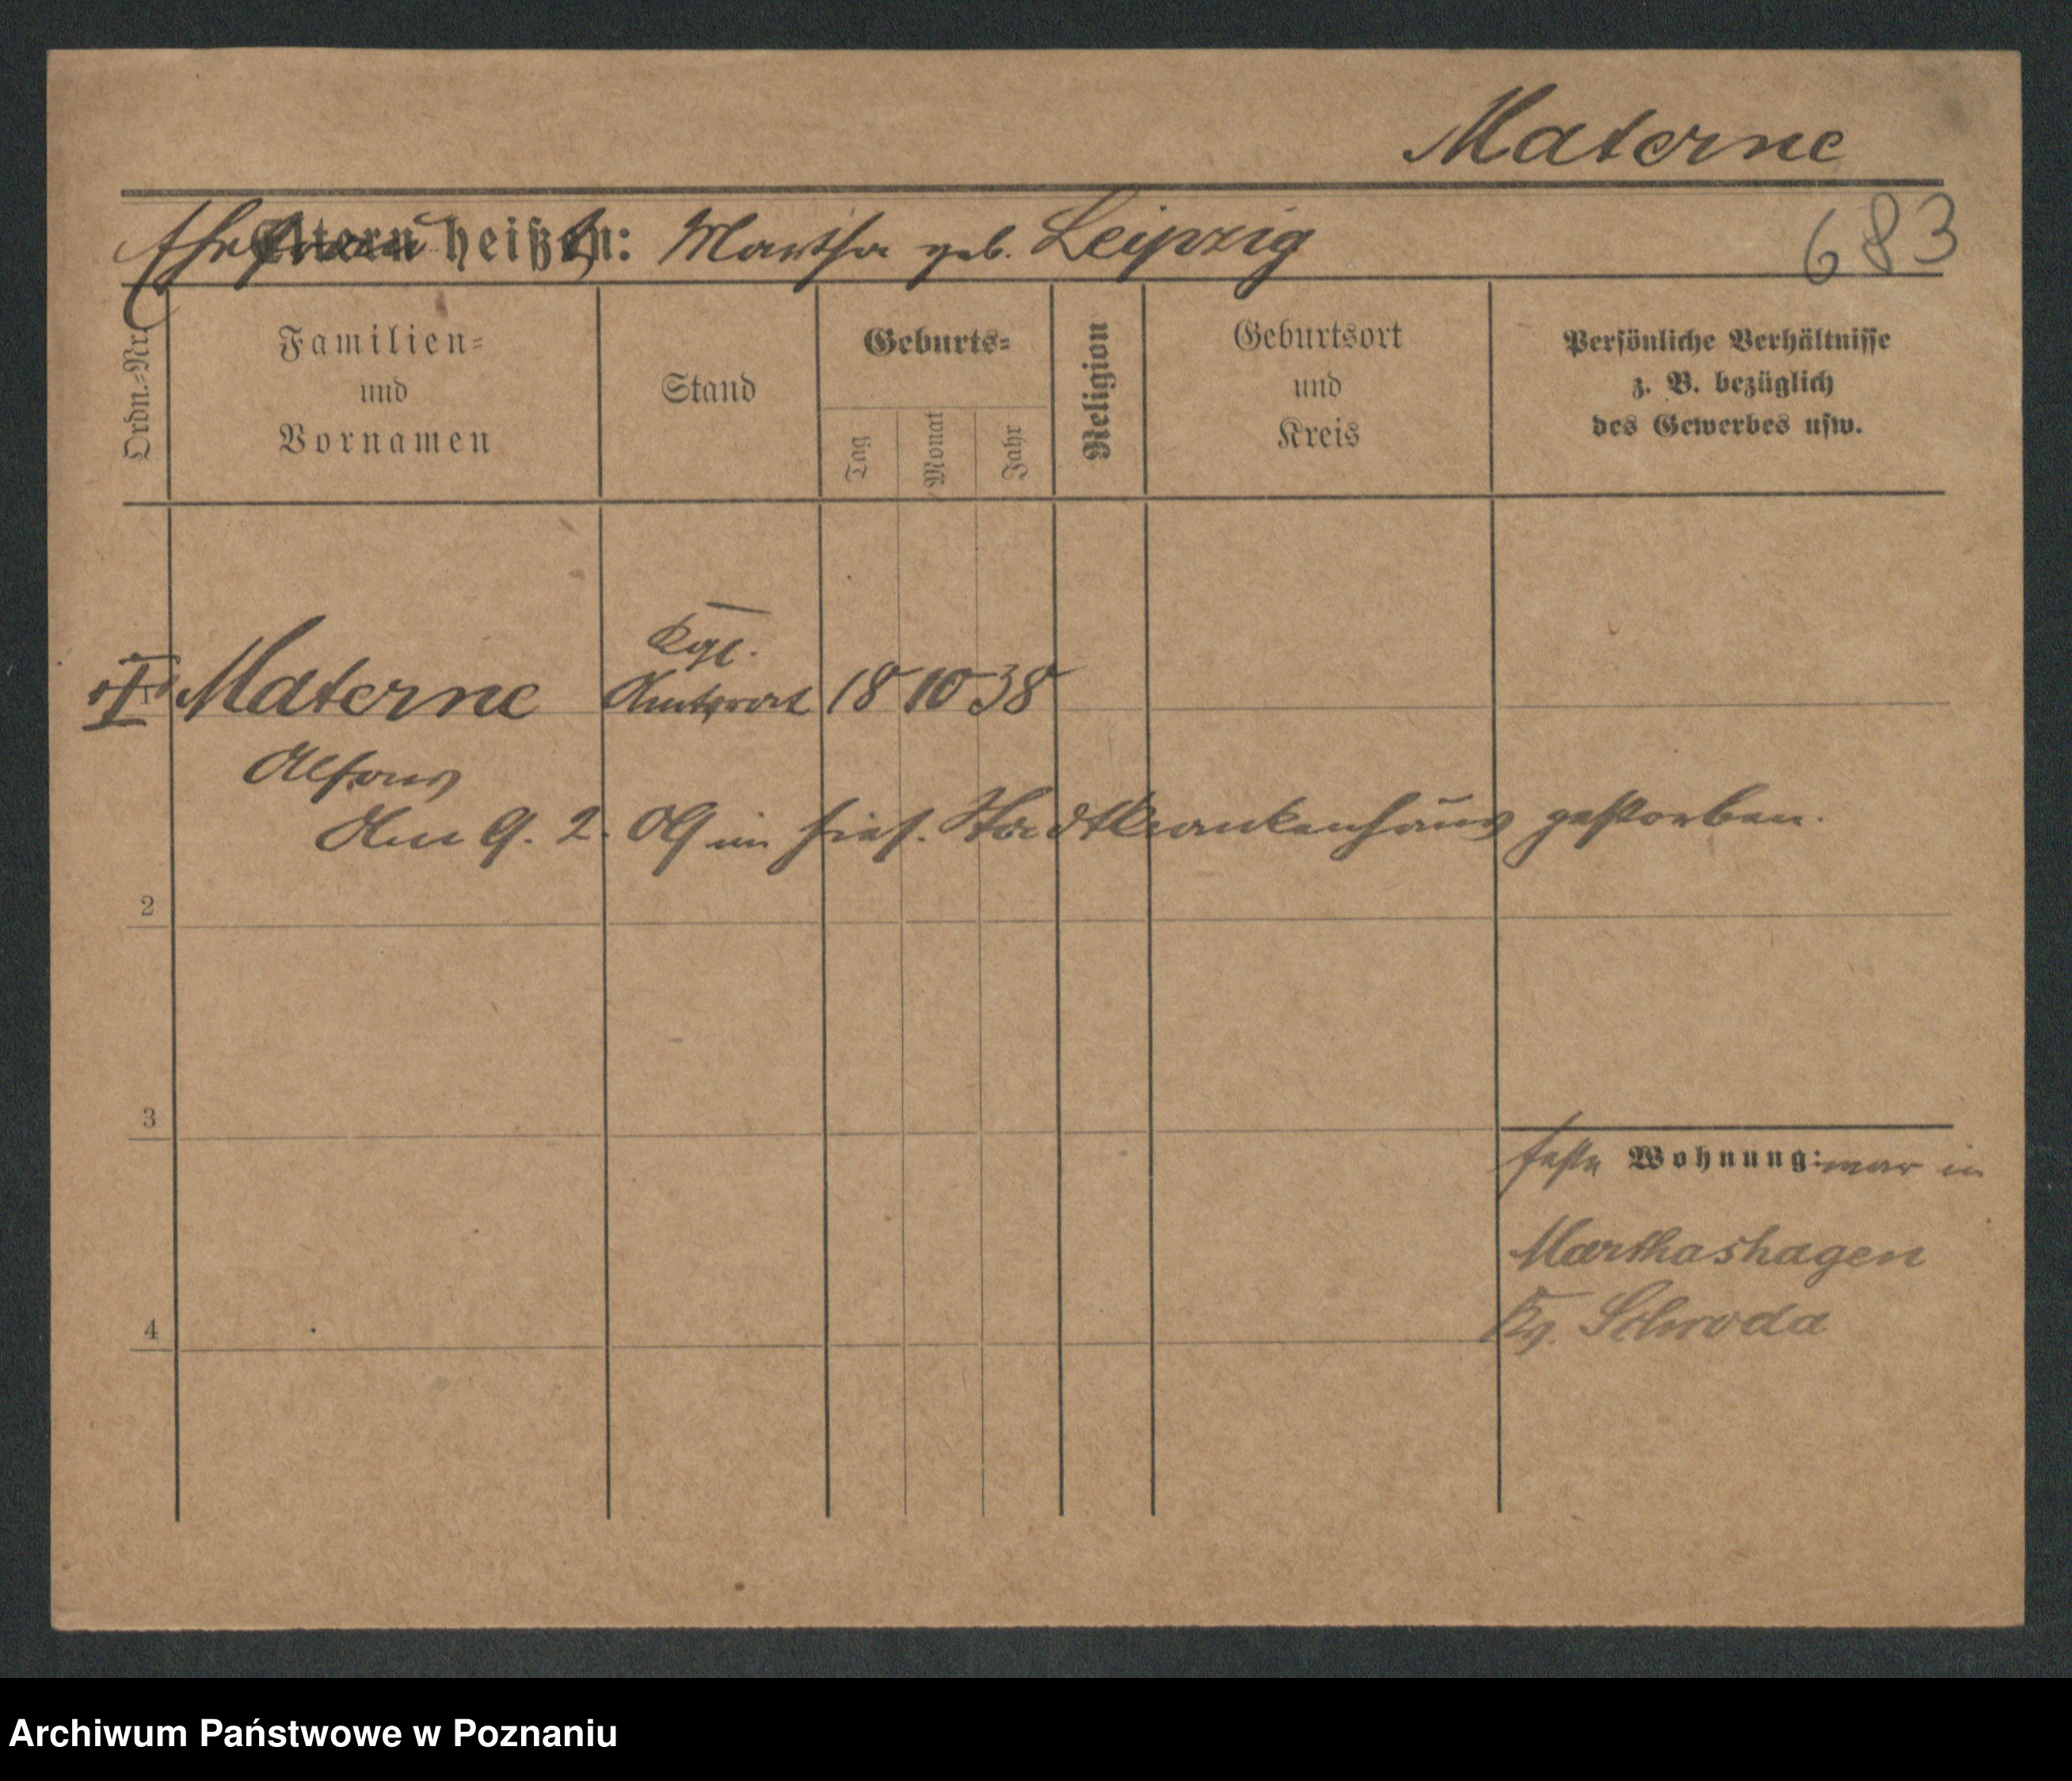 Materne
Ehefrau heißt: Martha geb. Leipzig
Eltern heißen:
683
Ordn.-Nr.
Familien-
und
Vornamen
Stand
Geburts-
Tag
Monat
Jahr
Religion
Geburtsort
und
Kreis
Persönliche Verhältnisse
z. B. bezüglich
des Gewerbes usw.
Kgl.
I Materne Amtsrat 18 10 38
1
Alfons
Am 9. 2. 09 im hies. Stadtkrankenhaus gestorben.
2
3
feste Wohnung: war in
Marthashagen
Kr. Schroda
4
Archiwum Państwowe w Poznaniu